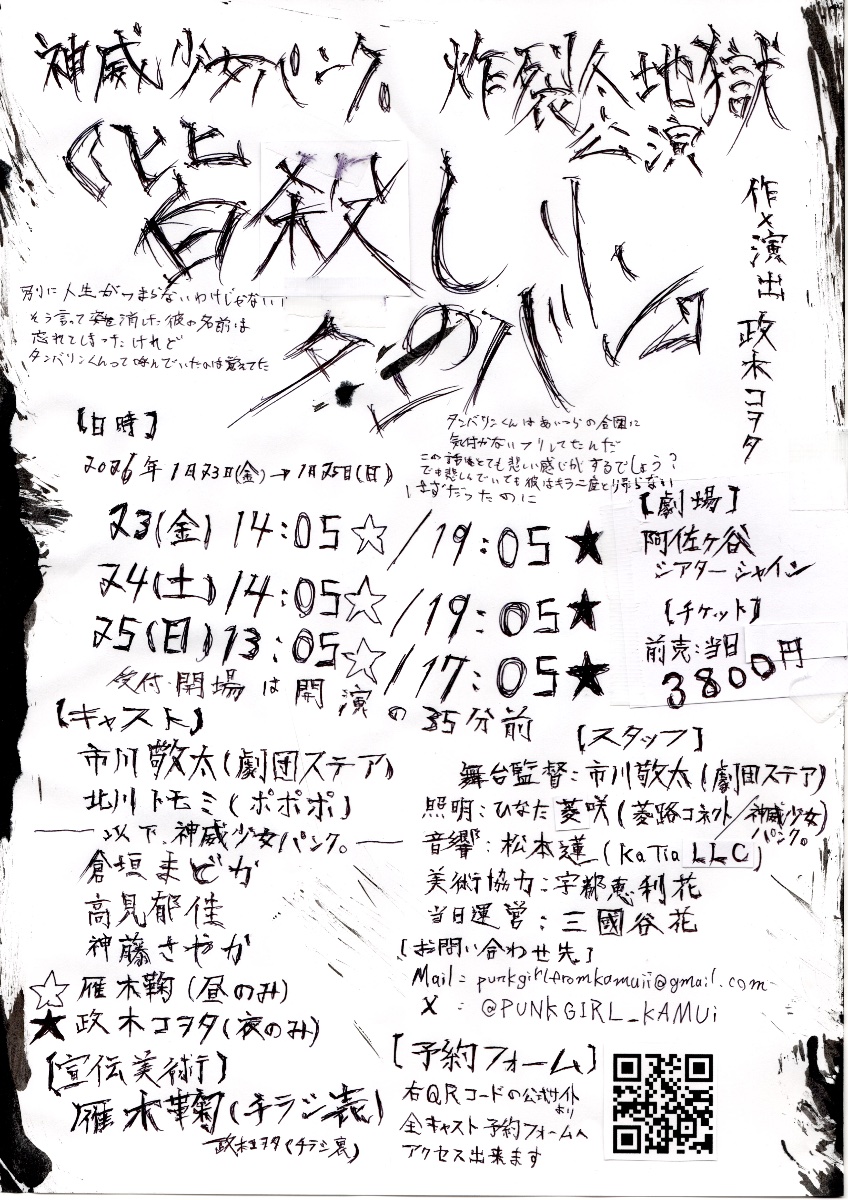 神威少女パンク。 炸裂冬地獄
公演
『皆殺し
タンバリン』
作×演出 政木コヲタ
別に人生がつまらないわけじゃない
そう言って姿を消した彼の名前は
忘れてしまったけれど
タンバリンくんって呼んでいたのは覚えてた
タンバリンくんはあいつらの合図に
気付かないフリしてたんだ
この話はとても悲しい感じがするでしょう?
でも悲しんでいても彼はもう二度と帰らない
はずだったのに
【日時】
2026年1月23日(金)→1月25日(日)
23(金)14:05☆/19:05★
24(土)14:05☆/19:05★
25(日)13:05☆/17:05★
受付・開場は開演の35分前
【劇場】
阿佐ヶ谷
シアターシャイン
【チケット】
前売・当日
3800円
【キャスト】
市川敬太(劇団ステア)
北川トモミ(ポポポ)
以下、神威少女パンク。
倉垣まどか
高見郁佳
神藤さやか
☆雁木鞠(昼のみ)
★政木コヲタ(夜のみ)
【スタッフ】
舞台監督:市川敬太(劇団ステア)
照明:ひなた菱咲(菱路コネクト/神威少女パンク。)
音響:松本蓮(KaTia LLC)
美術協力:宇都恵利花
当日運営:三國谷花
[お問い合わせ先]
Mail = punkgirlfromkamuii@gmail.com
X = @PUNKGIRL_KAMUi
【宣伝美術】
雁木鞠(チラシ表)
政木コヲタ(チラシ裏)
【予約フォーム】
右QRコードの公式サイト
より
全キャスト予約フォームへ
アクセス出来ます